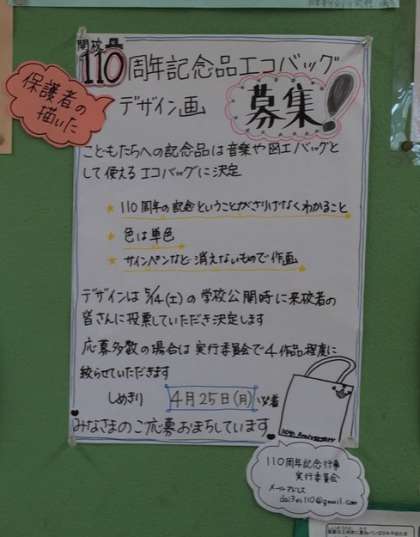 開校
110周年記念品エコバッグ
保護者の
描いた
デザイン画
募集!
こどもたちへの記念品は音楽や図工バッグと
して使えるエコバッグに決定
★ 110周年の記念ということがさりげなくわかること
★ 色は単色
★ サインペンなど消えないもので作画
デザインは5/14(土)の学校公開時に来校者の
皆さんに投票していただき決定します
応募多数の場合は実行委員会で4作品程度に
絞らせていただきます
しめきり 4月25日(月)必着
みなさまのご応募おまちしています
110th Anniversary
110周年記念行事
実行委員会
メールアドレス